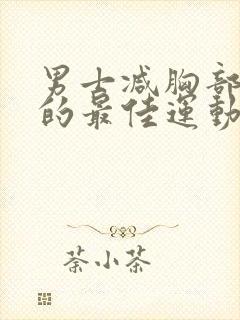 男士减胸部
的最佳運動
茶小茶